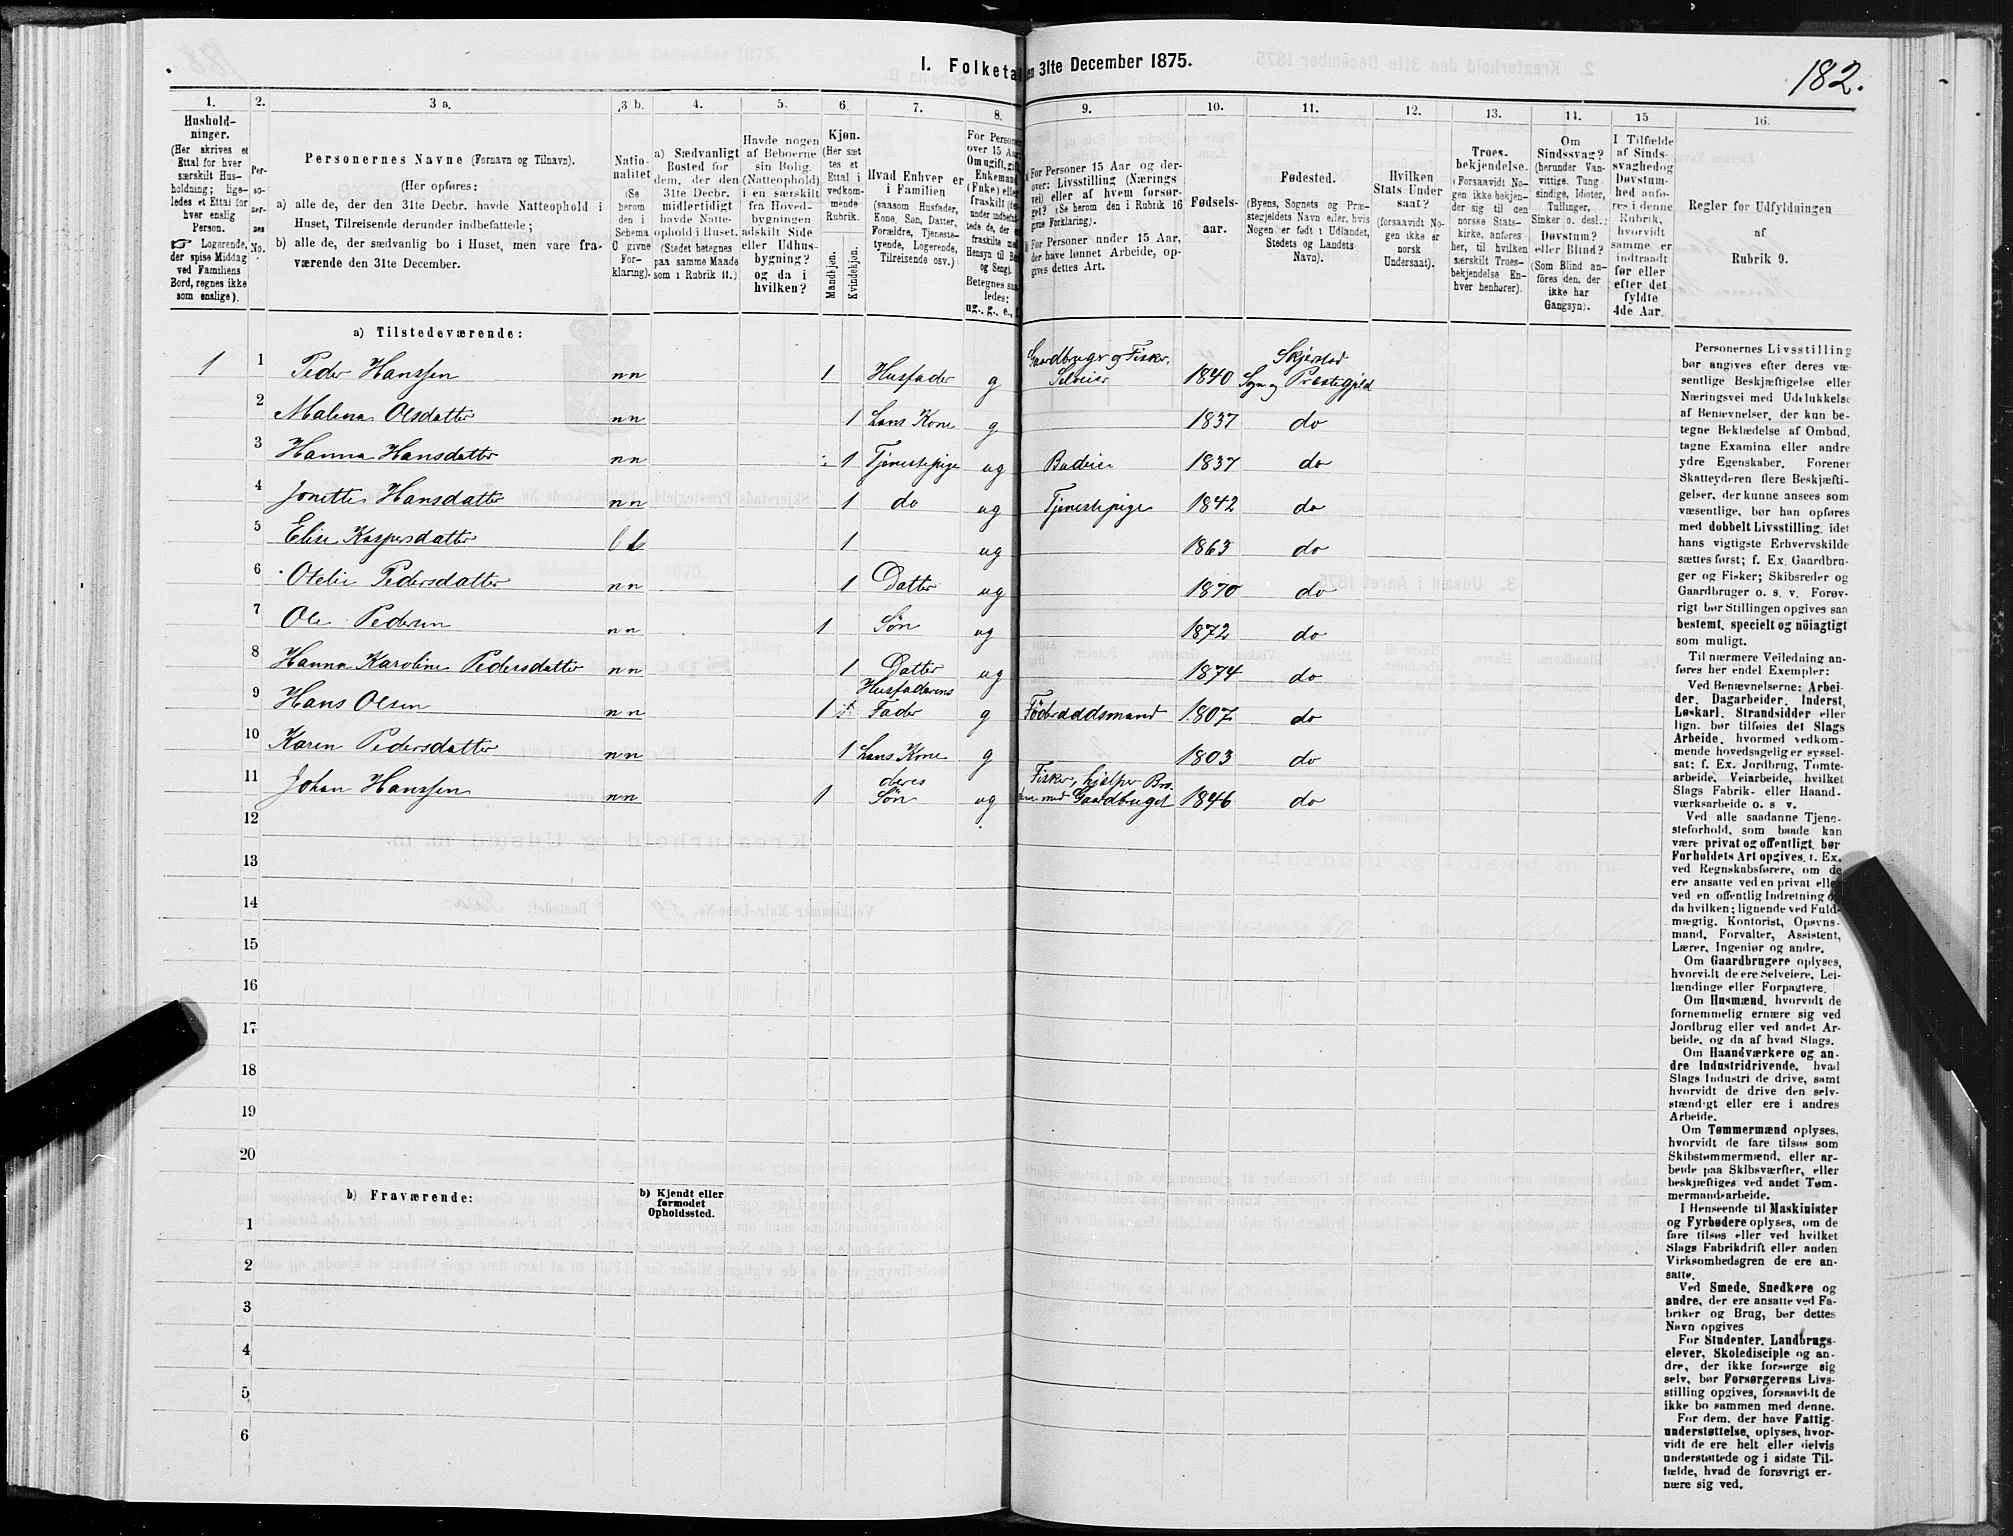 182.
I. Folketal den 31te December 1875.
1. 2. 3 a. 3 b. 4. 5. 6. 7. 8. 9. 10. 11. 12. 13. 14. 15 16.
Hushold-
ninger.
(Her skrives et
Ettal for hver
særskilt Hus-
holdning; lige-
ledes et Ettal for
hver enslig
Person.
☞ Logerende,
der spise Middag
ved Familiens
Bord, regnes ikke
som enslige).
Per-
so-
ner-
nes
No.
Personernes Navne (Fornavn og Tilnavn).
(Her opføres:
a) alle de, der den 31te Decbr. havde Natteophold i
Huset, Tilreisende derunder indbefattede;
b) alle de, der sædvanlig bo i Huset, men vare fra-
værende den 31te December.
Natio-
nalitet
(Se
herom
den i
Schema
O givne
For-
klaring).
a) Sædvanligt
Bosted for
dem, der den
31te Decbr.
midlertidigt
havde Natte-
ophold i Huset.
(Stedet betegnes
paa samme Maade
som i Rubrik 11.)
Havde nogen
af Beboerne
sin Bolig
(Natteophold)
i en særskilt
fra Hoved-
bygningen
adskilt Side
eller Udhus-
bygning?
og da i
hvilken?
Kjøn.
(Her sæt
tes et
Ettal i
vedkom-
mende
Rubrik.
Mandkjøn.
Kvindekjøn.
Hvad Enhver er
i Familien
(saasom Husfader,
Kone, Søn, Datter,
Forældre, Tjeneste-
tyende, Logerende,
Tilreisende osv.)
For Personer
over 15 Aar:
Om ugift, gift,
Enkemand
(Enke) eller
fraskilt
Betegnes saa-
ledes:
ug., g., e., f.
For Personer 15 Aar og der-
over: Livsstilling (Nærings
vei) eller af hvem forsør-
get? (Se herom den i Rubrik 16
givne Forklaring).
For Personer under 15 Aar,
der have lønnet Arbeide, op-
gives dettes Art.
Fødsels-
aar.
Fødested.
(Byens, Sognets og Præ-
stegjeldets Navn eller, hvis
Nogen er født i Udlandet,
Stedets og Landets
Navn).
Hvilken
Stats Under
saat?
(forsaavidt No-
gen ikke er
norsk
Undersaat).
Troes-
bekjendelse.
(Forsaavidt No-
gen ikke bekjen-
der sig til den
norske Stats-
kirke, anføres
her, til hvilken
særskilt Troes-
bekjendelse En-
hver henhører).
Om
Sindssvag?
(herunder Van-
vittige, Tung
sindige, Idioter,
Tullinger,
Sinker o. desl.)
Døvstum?
eller Blind?
(Som Blind an-
føres den, der
ikke har
Gangsyn).
I Tilfælde
af Sinds-
svaghed og
Døvstum-
hed anfø-
res i denne
Rubrik,
hvorvidt
samme er
indtraadt
før eller
efter det
fyldte
4de Aar.
Regler for Udfyldningen
af
Rubrik 9.
a) Tilstedeværende:
1 1 Peder Hanssen nn 1 Husfader g Gaardbruger og Fisker, Selveier 1840 Skjerstad Sogn og Præstegjeld
2 Malena Olsdatter nn 1 hans Kone g 1837 do
3 Hanna Hansdatter nn 1 Tjenestepige ug Budeie 1837 do
4 Jonette Hansdatter nn 1 do ug Tjenestepige 1842 do
5 Elise Kaspersdatter 1 ug 1863 do
6 Otelie Pedersdatter nn 1 Datter ug 1870 do
7 Ole Pedersen nn 1 Søn ug 1872 do
8 Hanna Karoline Pedersdatter nn 1 Datter ug 1874 do
9 Hans Olsen nn 1 Husfaderens Fader g Föderaadsmand 1807 do
10 Karen Pedersdatter nn 1 hans Kone g 1803 do
11 Johan Hanssen nn 1 deres Søn ug Fisker, hjelper Bro- deren med Gaardbruget 1846 do
12
13
14
15
16
17
18
19
20
b) Fraværende:
b) Kjendt eller
formodet
Opholdssted.
1
2
3
4
5
6
Personernes Livsstilling
bør angives efter deres væ-
sentlige Beskjæftigelse eller
Næringsvei med Udelukkelse
af Benævnelser, der kun be-
tegne Beklædelse af Ombud,
tagne Examina eller andre
ydre Egenskaber. Forener
Skatteyderen flere Beskjæfti-
gelser, der kunne ansees som
væsentlige, bør han opføres
med dobbelt Livsstilling, idet
hans vigtigste Erhvervskilde
sættes først; f. Ex. Gaardbru-
ger og Fisker; Skibsreder og
Gaardbruger o. s. v. Forøv-
rigt bør Stillingen opgives saa
bestemt, specielt og nöiagtigt
som muligt.
Til nærmere Veiledning an-
føres her endel Exempler:
Ved Benævnelserne: Arbei-
der, Dagarbeider, Inderst,
Løskarl, Strandsidder eller
lign. bør tilføies det Slags
Arbeide, hvormed vedkom-
mende hovedsagelig er syssel-
sat; f. Ex. Jordbrug, Tomte-
arbeide, Veiarbeide, hvilket
Slags Fabrik- eller Haand-
værksarbeide o. s v.
Ved alle saadanne Tjene-
steforhold, som baade kan
være privat og offentligt, bør
Forholdets Art opgives, f. Ex.
ved Regnskabsførere, om de
ere ansatte ved en privat eller
ved en offentlig Indretning og
da hvilken; lignende ved Fuld-
mægtig, Kontorist, Opsyns-
mand, Forvalter, Assistent,
Lærer, Ingeniør og andre.
Om Gaardbrugere oplyses,
hvorvidt de ere Selveiere, Lei-
lændinge eller Forpagtere.
Om Husmænd, hvorvidt de
fornemmelig ernære sig ved
Jordbrug eller ved andet Ar-
beide, og da af hvad Slags.
Om Haandværkere og an-
dre Industridrivende, hvad
Slags Industri de drive, samt
hvorvidt de drive den selv-
stændigt eller ere i andres
Arbeide.
Om Tømmermænd oplyses,
hvorvidt de fare tilsøs som
Skibstømmermænd, eller ar-
beide paa Skibsværfter, eller
beskjæftiges ved andet Tøm-
mermandsarbeide.
I Henseende til Maskinister
og Fyrbødere oplyses, om de
fare tilsøs eller ved hvilket
Slags Fabrikdrift eller anden
Virksomhedsgren de ere an-
satte.
Ved Smede, Snedkere og
andre, der ere ansatte ved Fa-
briker og Brug, bør dettes
Navn opgives
For Studenter, Landbrugs-
elever, Skoledisciple og an-
dre, der ikke forsørge sig
selv, bør Forsørgerens Livs-
stilling opgives, forsaavidt de
ikke bo sammen med denne.
For dem, der have Fattig-
understøttelse, oplyses, hvor-
vidt de ere helt eller delvis
understøttede og i sidste Til-
fælde, hvad de forøvrigt er-
nære sig ved.